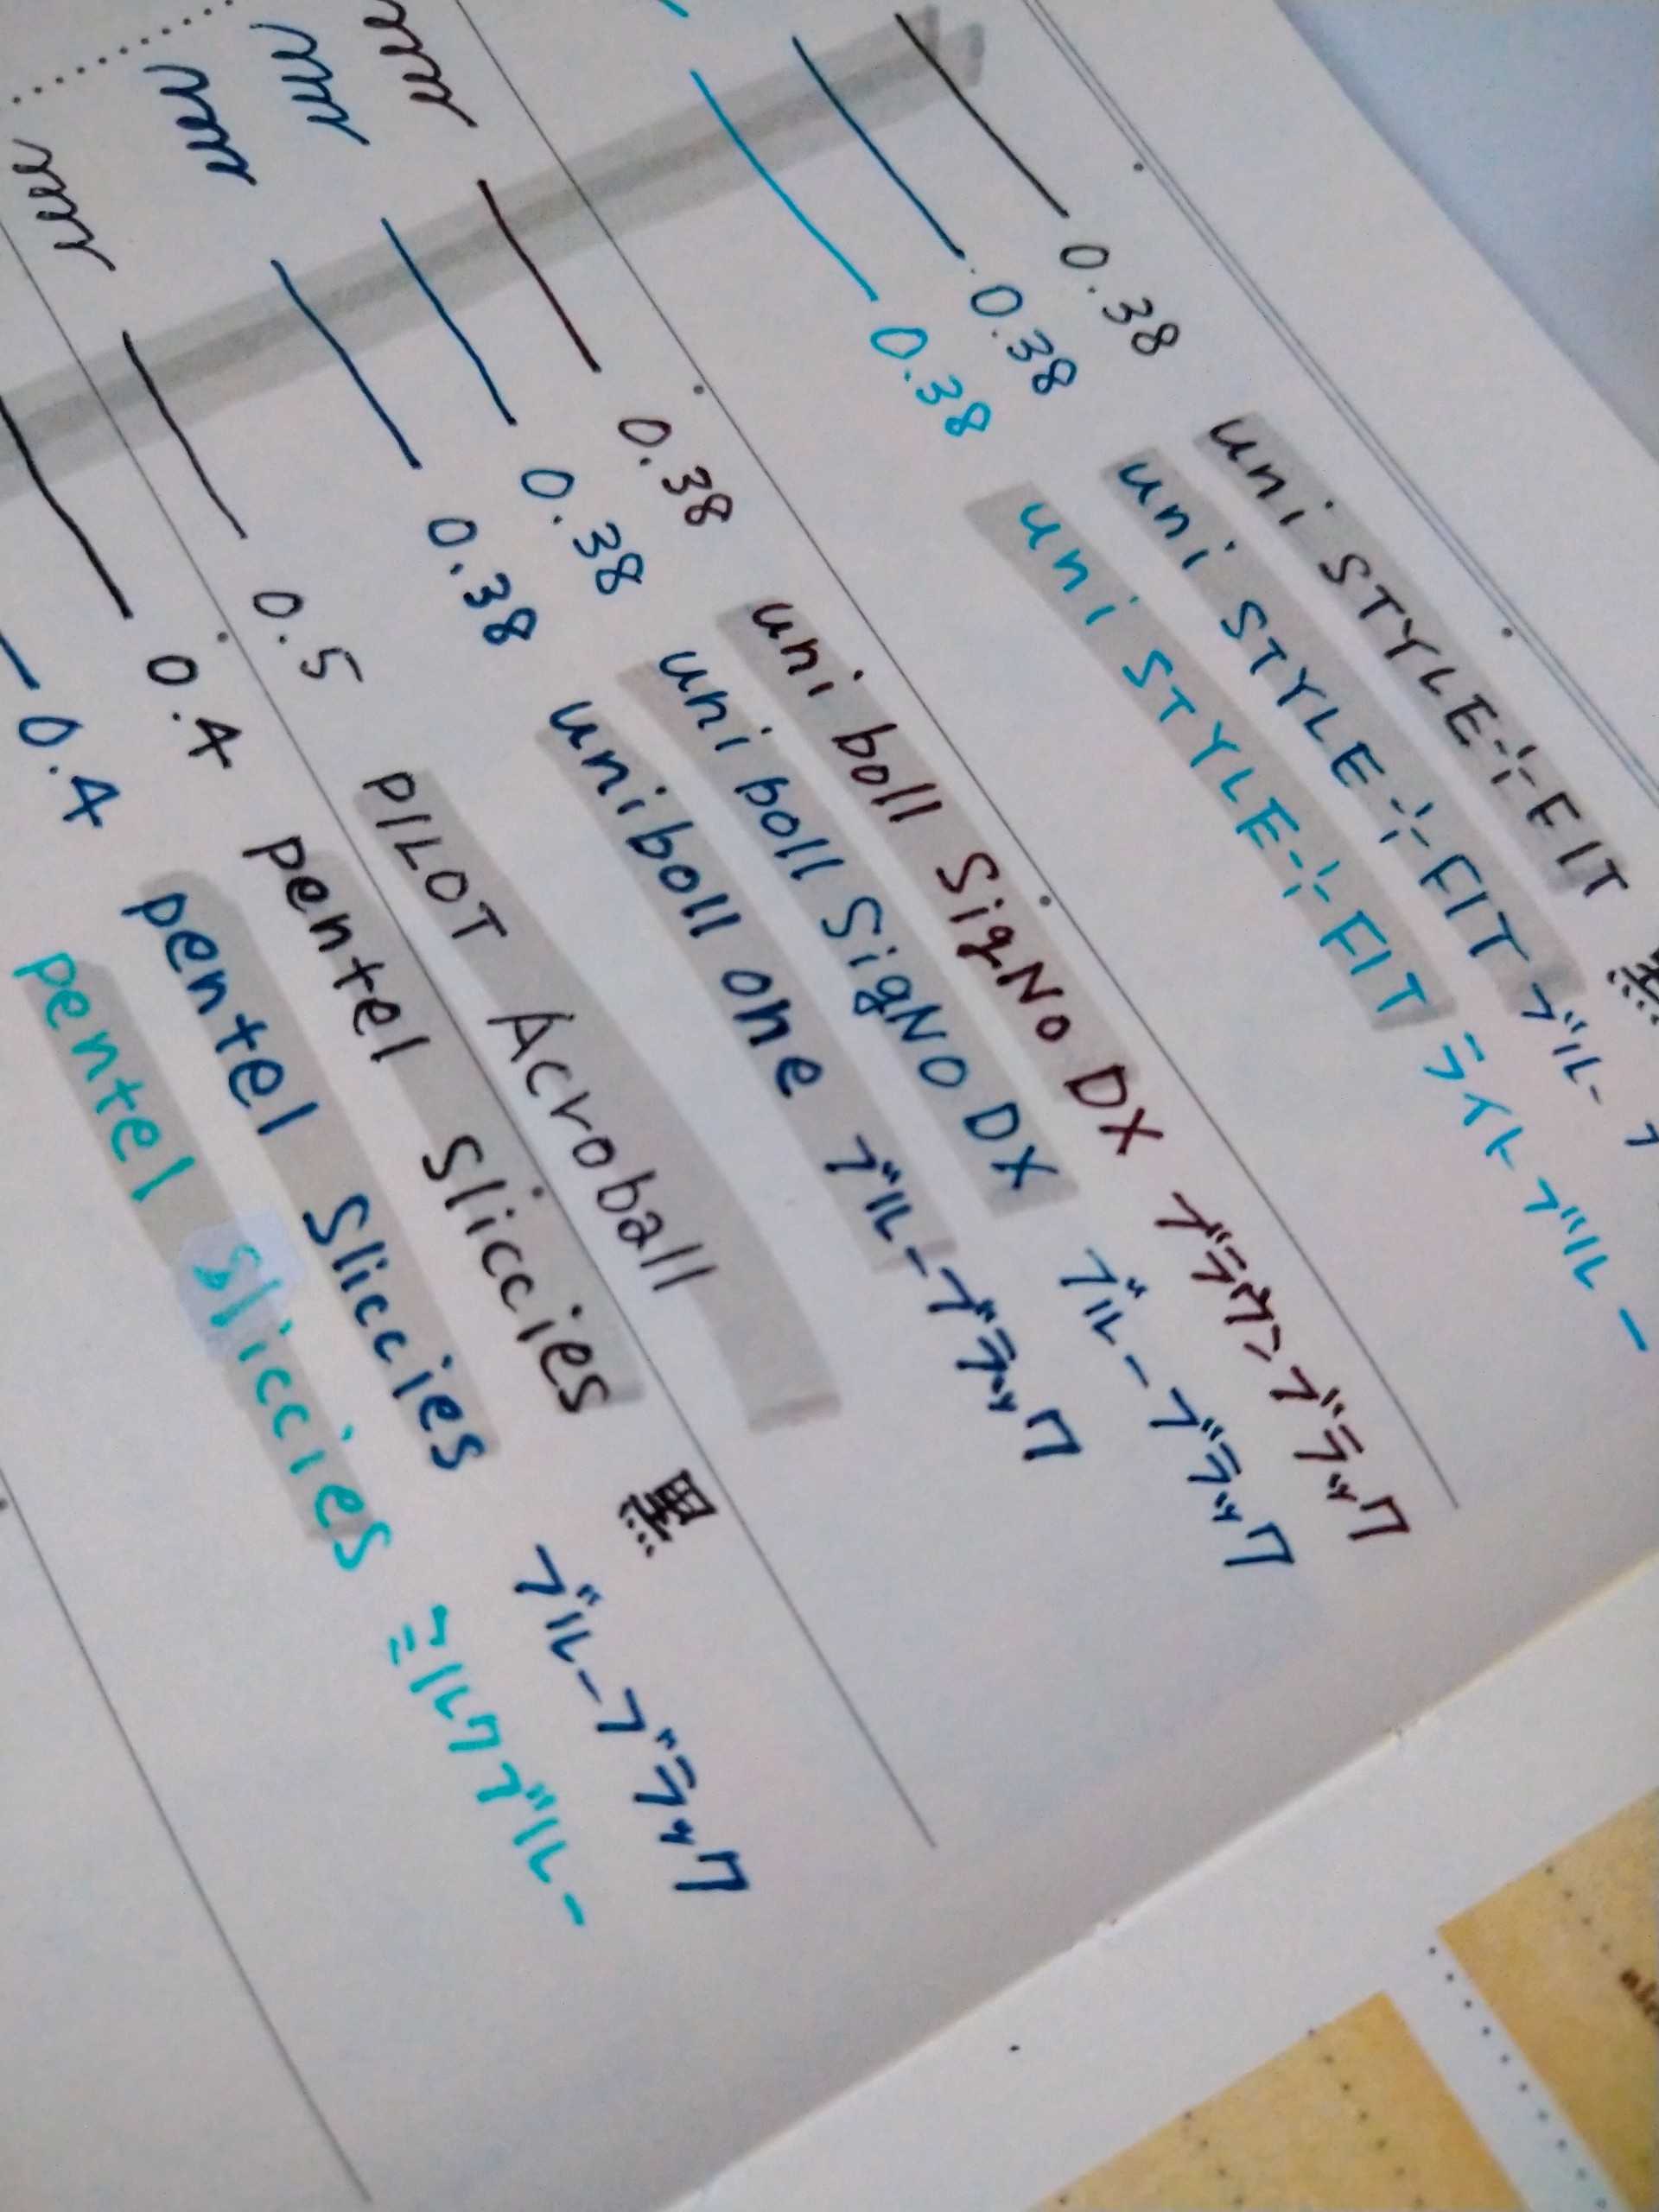 0.38 uni STYLE-FIT 黒
0.38 uni STYLE-FIT ブルー
0.38 uni STYLE-FIT ライトブルー
0.38 uni boll SigNo DX ブラウンブラック
0.38 uni boll SigNO DX ブルーブラック
0.38 uniboll one ブルーブラック
0.5 PILOT Acroball
0.4 pentel sliccies 黒
0.4 pentel Sliccies ブルーブラック
pentel sliccies ミルクブルー